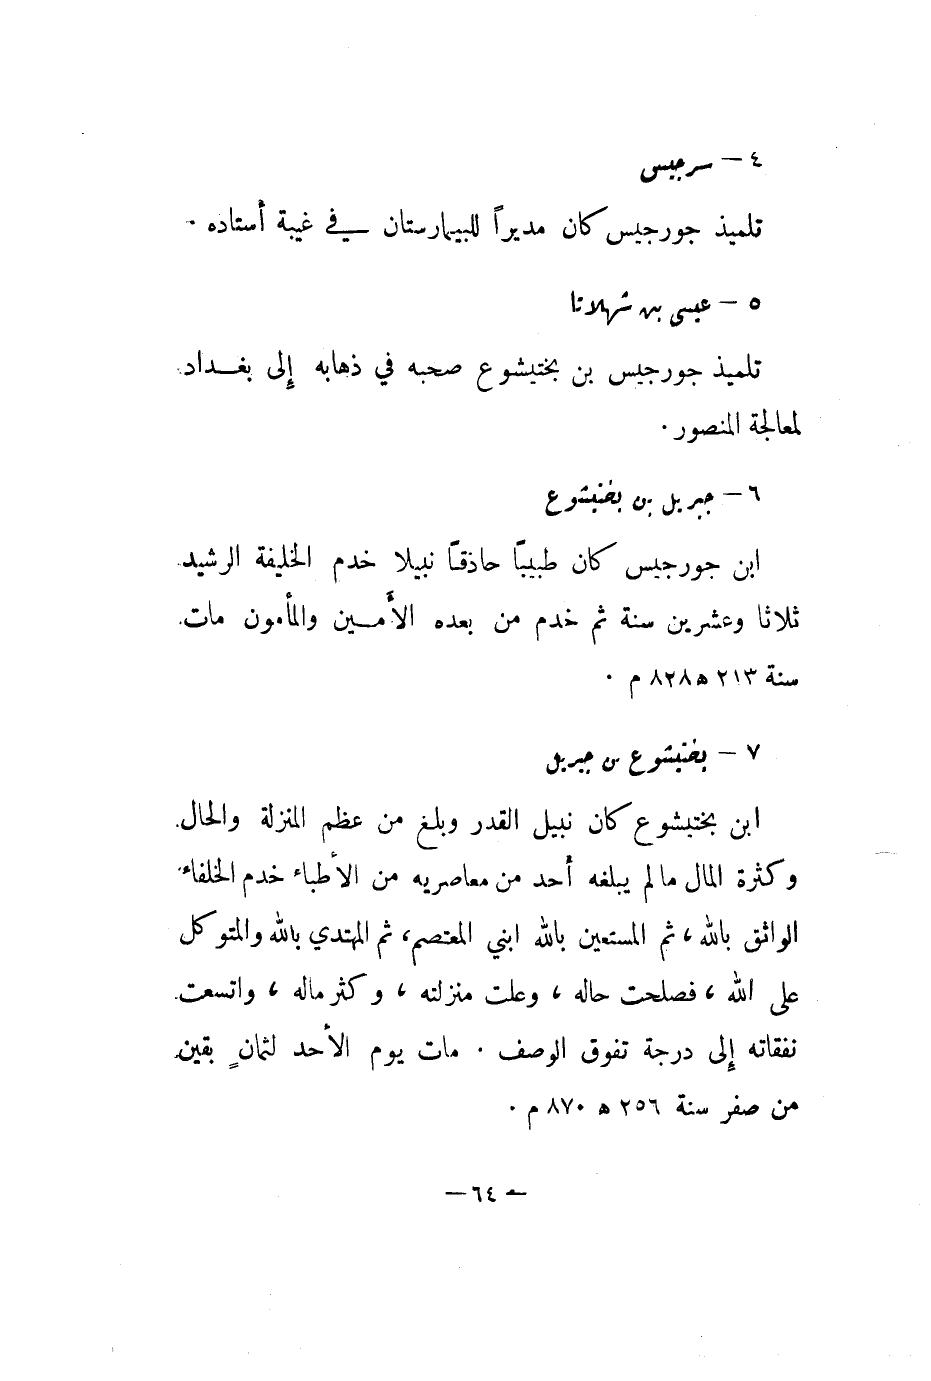 ٤ – سرجيس
تلميذ جورجيس كان مديراً للبيمارستان في غيبة أستاده .
٥ – عيسى بن شهلاتا
تلميذ جورجيس بن بختيشوع صحبه في ذهابه إلى بغداد
لمعالجة المنصور .
٦ – جبريل بن بختيشوع
ابن جورجيس كان طبيبًا حاذقًا نبيلا خدم الخليفة الرشيد
ثلاثا وعشرين سنة ثم خدم من بعده الأمين والمأمون مات
سنة ٢١٣ ه ٨٢٨ م .
٧ – بختيشوع بن جبريل
ابن بختيشوع كان نبيل القدر وبلغ من عظم المنزلة والحال
وكثرة المال مالم يبلغه أحد من معاصريه من الأطباء خدم الخلفاء
الواثق بالله ، ثم المستعين بالله ابني المعتصم، ثم المهتدي بالله والمتوكل
على الله ، فصلحت حاله ، وعلت منزلته ، وكثر ماله ، واتسعت
نفقاته إلى درجة تفوق الوصف . مات يوم الأحد لثمانٍ بقين
من صفر سنة ٢٥٦ ه ٨٧٠ م .
– ٦٤ –